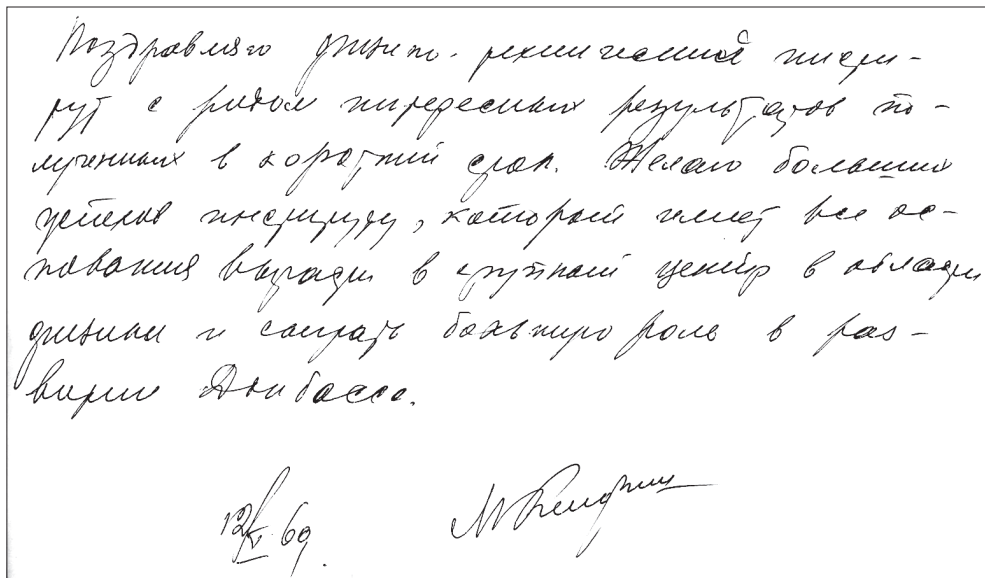 Поздравляю физико-технический инсти-
тут с рядом интересных результатов по-
лученных в короткий срок. Желаю больших
успехов институту, который имеет все ос-
нования вырасти в крупный центр в области
физики и сыграть большую роль в раз-
витии Донбасса.
12/V 69.